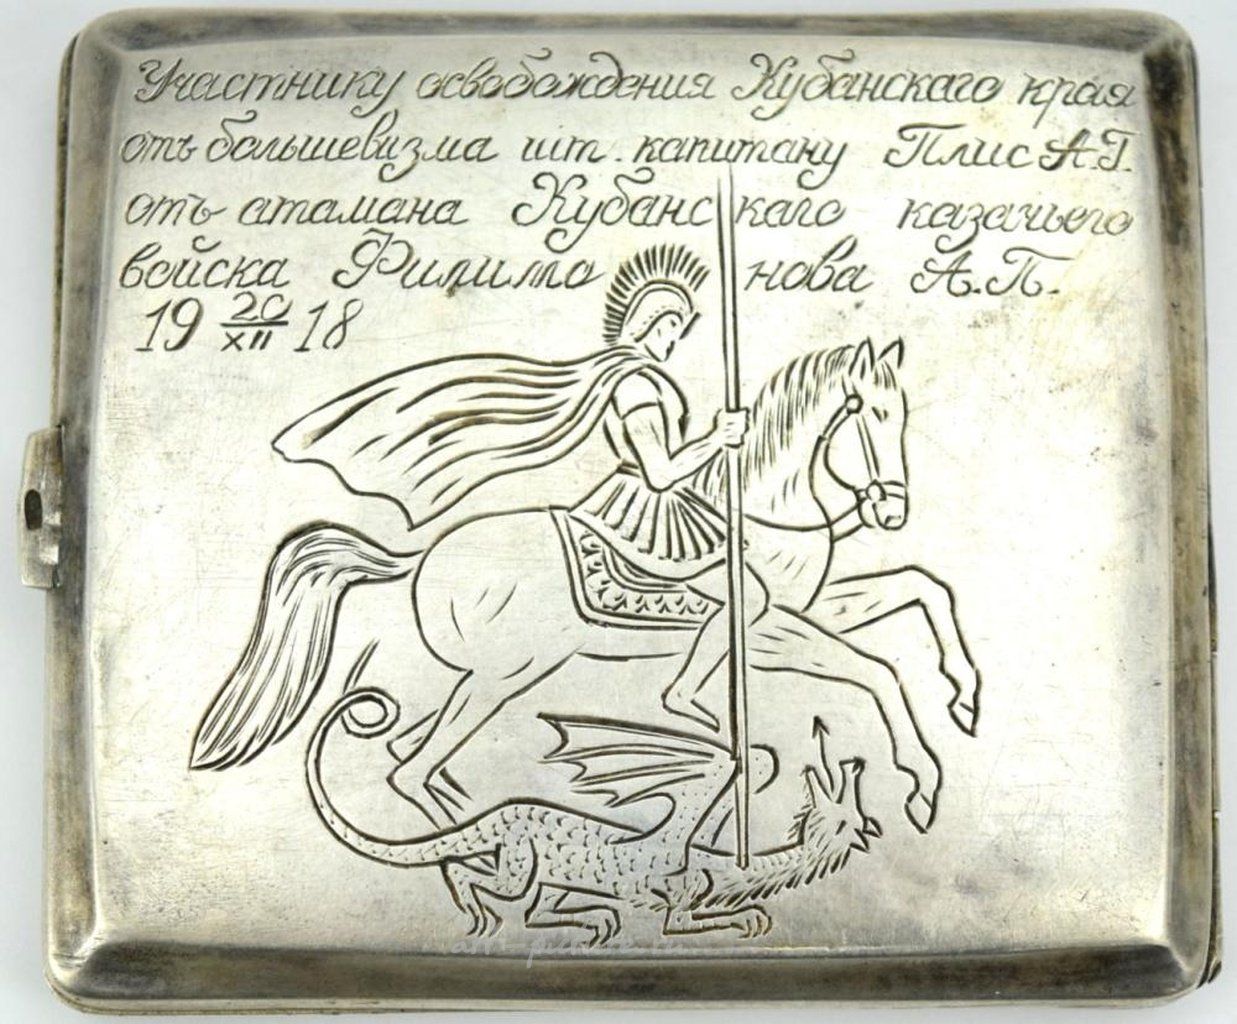 Участнику освобождения Кубанскаго края
отъ большевизма шт. капитану Плис А.Г.
отъ атамана Кубанскаго казачьего
войска Филимонова А.П.
19 20/XII 18